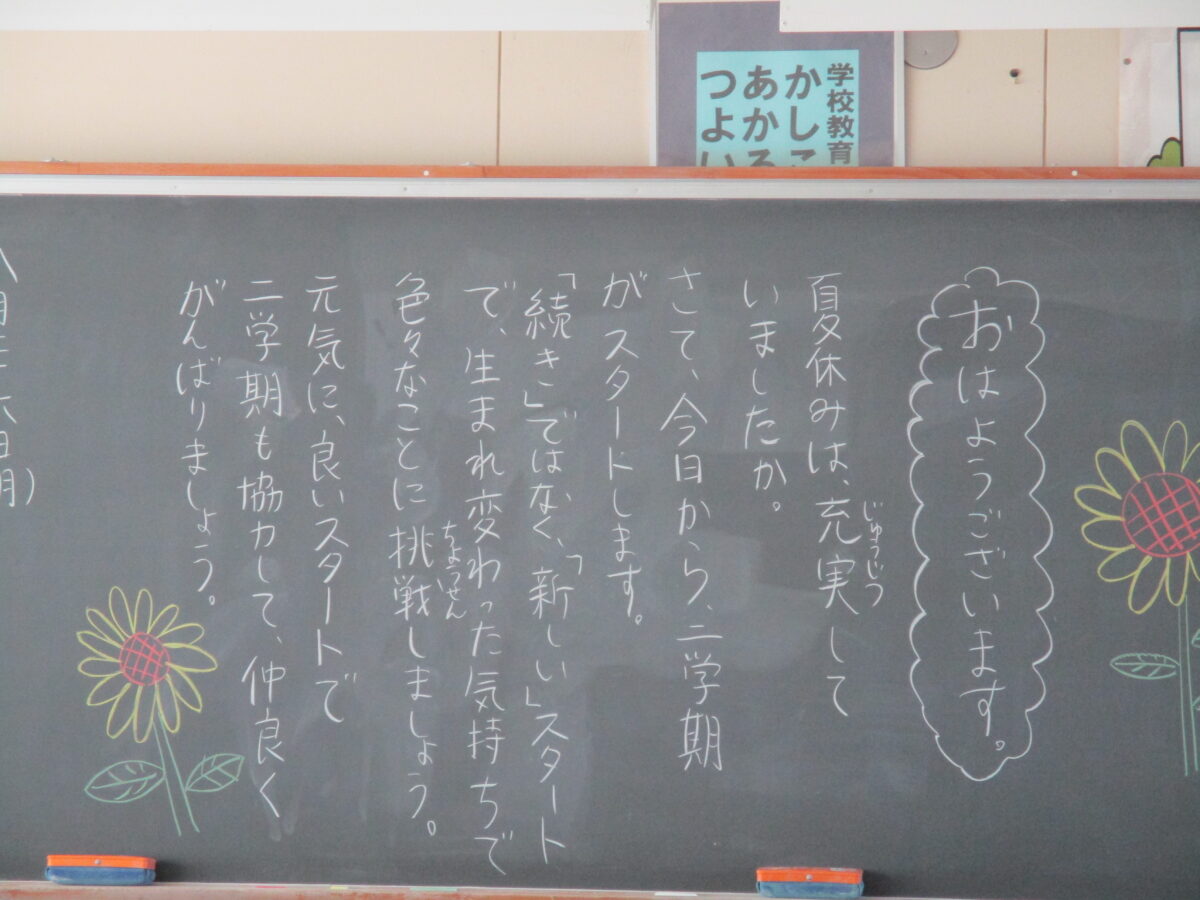 学校教育
かしこ
あかる
つよい
おはようございます。
じゅうじつ
夏休みは、充実して
いましたか。
さて、今日から、二学期
がスタートします。
「続き」ではなく、「新しい」スタート
で、生まれ変わった気持ちで
ちょうせん
色々なことに挑戦しましょう。
元気に、良いスタートで
二学期も協力して、仲良く
がんばりましょう。